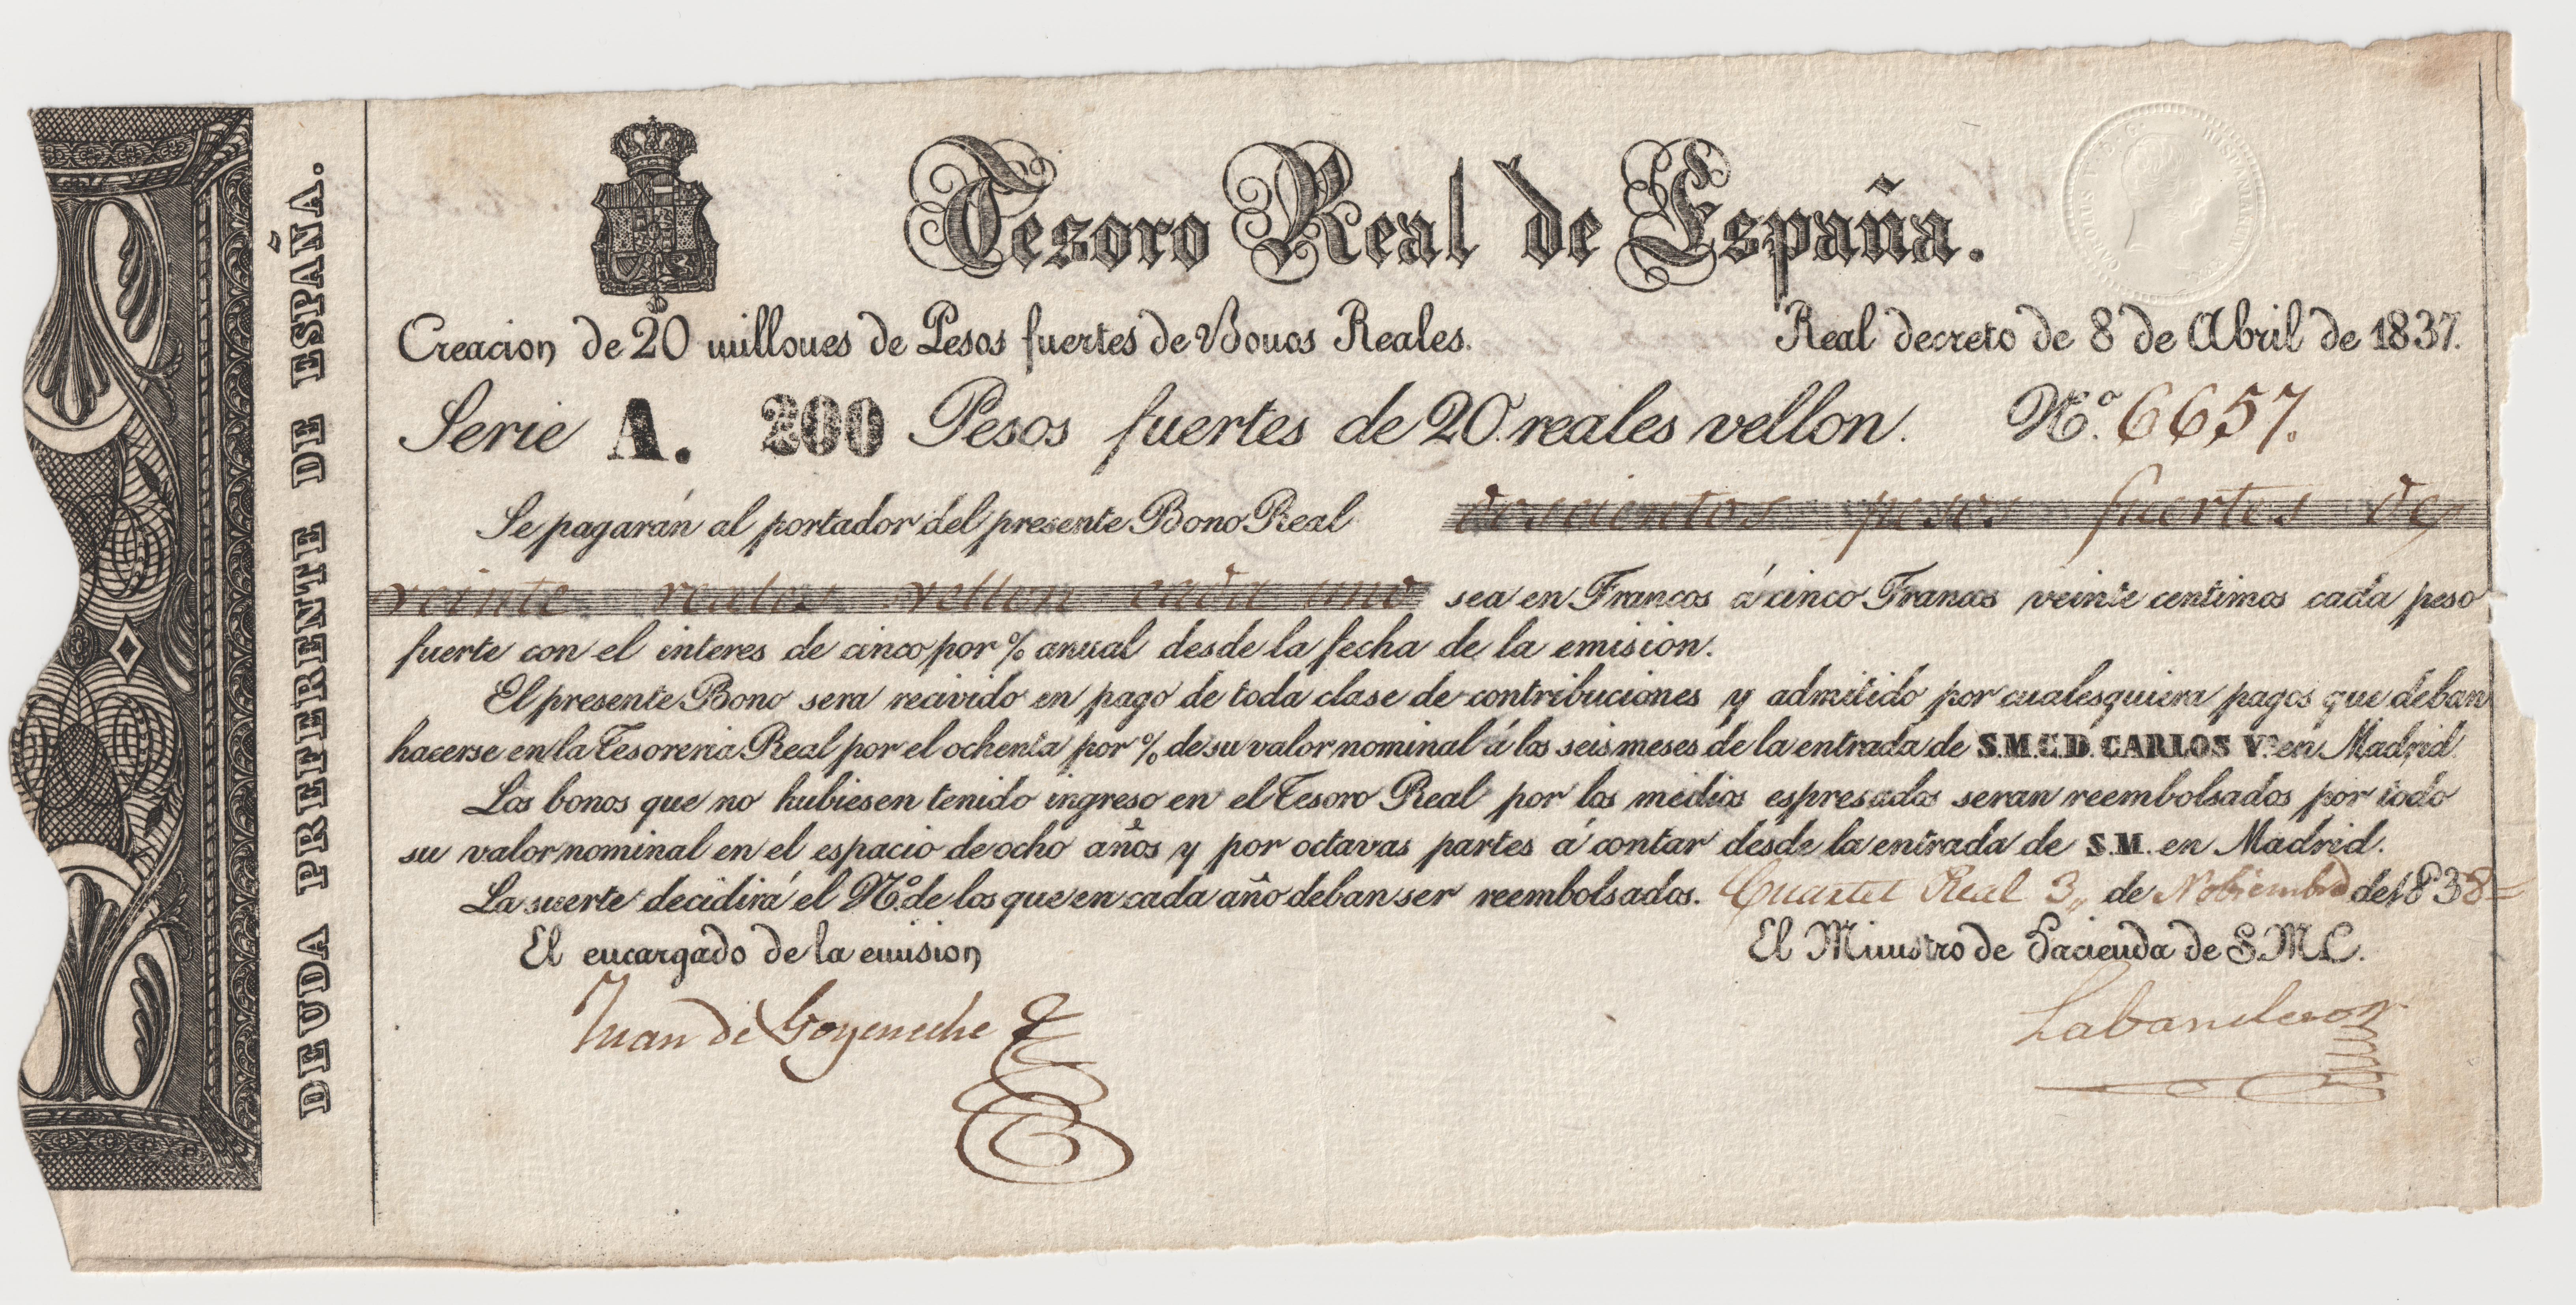 DEUDA PREFERENTE DE ESPAÑA.
Tesoro Real de España.
Creacion de 20 millones de Pesos fuertes de Bonos Reales.
Real decreto de 8 de Abril de 1837.
Serie A. 200 Pesos fuertes de 20 reales vellon. Nº. 6657.
Se pagarán al portador del presente Bono Real doscientos pesos fuertes de
veinte reales vellon cada uno sea en Francos á cinco Francos veinte centimos cada peso
fuerte con el interes de cinco por % anual desde la fecha de la emision.
El presente Bono sera recivido en pago de toda clase de contribuciones y admitido por cualesquiera pagos que deban
hacerse en la Tesoreria Real por el ochenta por % de su valor nominal á los seis meses de la entrada de S.M.C.D. CARLOS Vº. en Madrid.
Los bonos que no hubiesen tenido ingreso en el Tesoro Real por los medios espresados seran reembolsados por todo
su valor nominal en el espacio de ocho años y por octavas partes á contar desde la entrada de S.M. en Madrid.
La suerte decidirá el Nº. de los que en cada año deban ser reembolsados. Cuartel Real 3,, de Nobiembre de 1838=
El encargado de la emision
El Ministro de Hacienda de S.M.C.
Juan de Goyeneche
Labandero